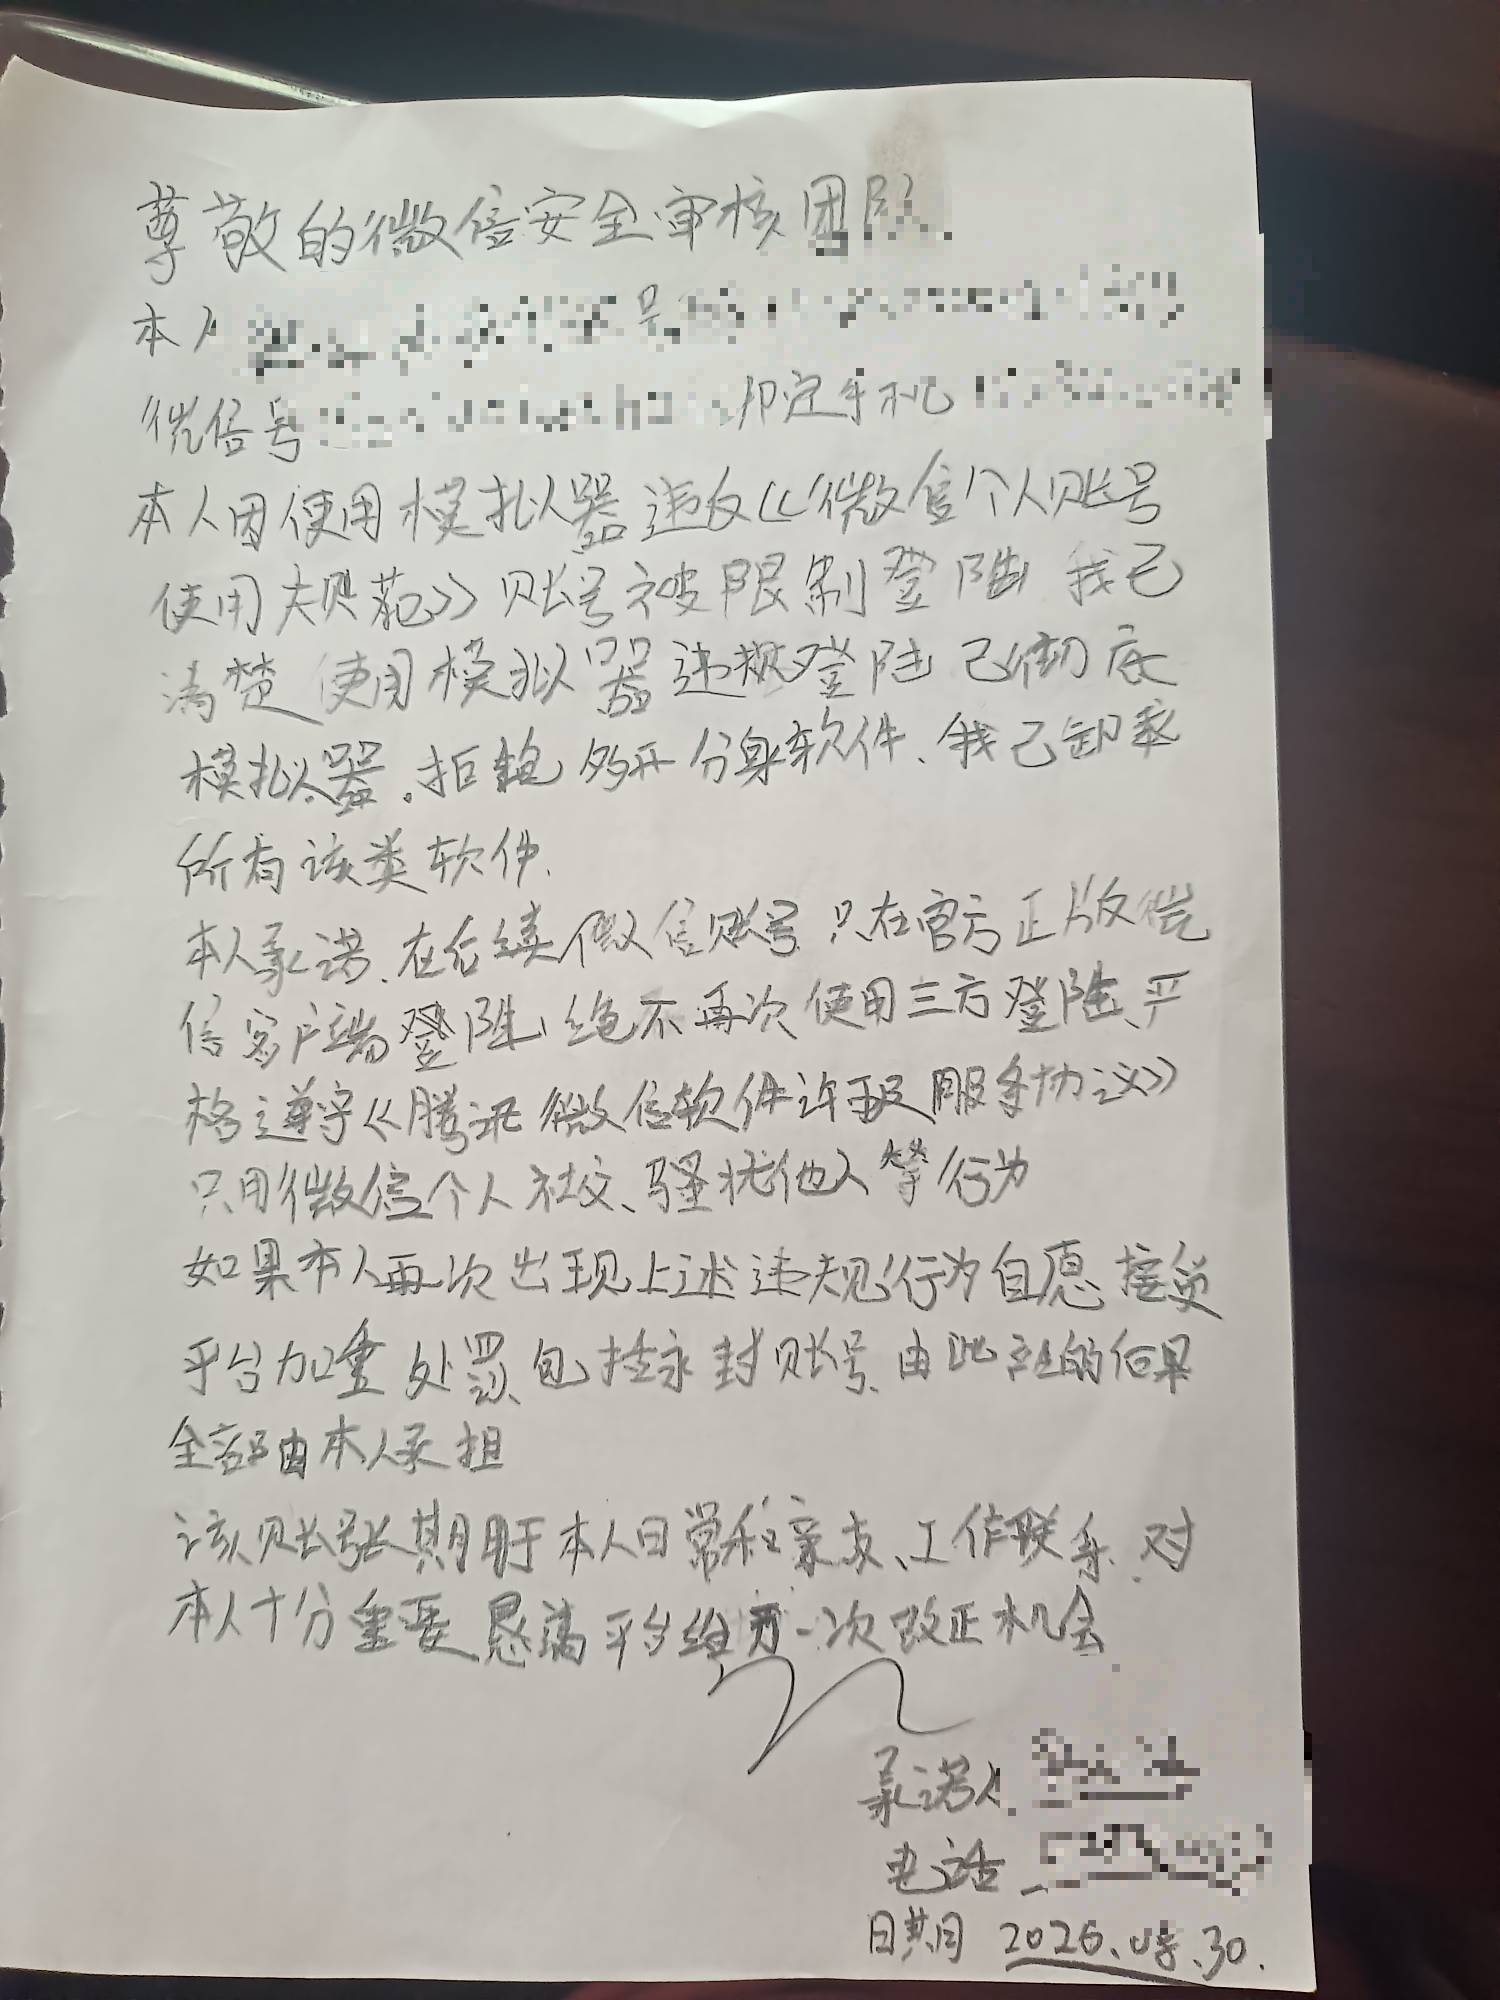 尊敬的微信安全审核团队
本人 号
微信号 绑定手机
本人因使用模拟器违反《微信个人账号
使用规范》账号被限制登陆 我已
清楚 使用模拟器违规登陆 已彻底
模拟器. 拒绝多开分身软件、我已卸载
所有该类软件.
本人承诺、在后续微信账号只在官方正版微
信客户端登陆, 绝不再次使用三方登陆、严
格遵守《腾讯微信软件许可及服务协议》
只用微信个人社交、骚扰他人等行为
如果本人再次出现上述违规行为自愿接受
平台加重处罚、包括永封账号、由此产生的后果
全部由本人承担
该账号长期用于本人日常和亲友、工作联系. 对
本人十分重要恳请平台给予一次改正机会
承诺人
电话
日期 2026. .30.